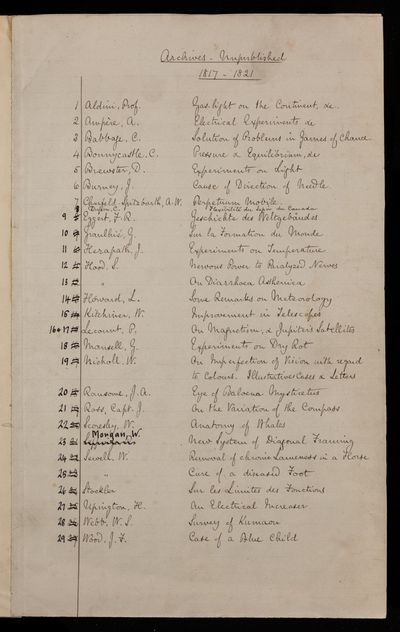 Archives - Unpublished
1817 - 1821
1 Aldini, Prof. Gas-light on the Continent, &c.
2 Ampère, A. Electrical Experiments &c
3 Babbage, C. Solution of Problems in Games of Chance
4 Bonnycastle, C. Pressure & Equilibrium, &c
5 Brewster, D. Experiments on Light
6 Burney, J. Cause of Direction of Needle
7 Chrifeld-Spitzbarth, A. W. Perpetuum Mobile
8 Dupin, C. Flexibilité du sapin du Canada
9 Eggert, F. R. Geschichte des Weltgebäudes
10 G. Sur la Formation du Monde
11 Herapath, J. Experiments on Temperature
12 Hood, S. Nervous Power to Paralyzed Nerves
13 " On Diarrhoea Asthenica
14 Howard, L. Some Remarks on Meteorology
15 Kitchiner, W. Improvement in Telescopes
16+17 Lecount, P. On Magnetism, & Jupiter's Satellites
18 Maunsell, G. Experiments on Dry Rot
19 Nicholl, W. On Imperfection of Vision with regard
to Colours. Illustrative Cases & Letters
20 Ransome, J. A. Eye of Balaena Mysticetus
21 Ross, Capt. J. On the Variation of the Compass
22 Scoresby, W. Anatomy of Whales
Morgan, W.
23 New System of Diagonal Framing
24 Sewell, W. Removal of chronic Lameness in a Horse
25 " Cure of a diseased Foot
26 Stockler Sur les Limites des Fonctions
27 Upington, H. An Electrical Increaser
28 Webb, W. S. Survey of Kumaon
29 Wood, J. F. Case of a Blue Child